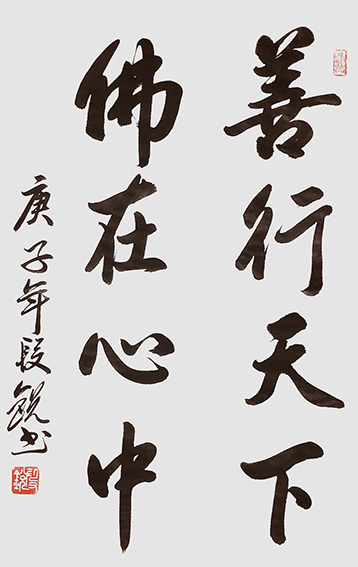 善行天下
佛在心中
庚子年段锐书